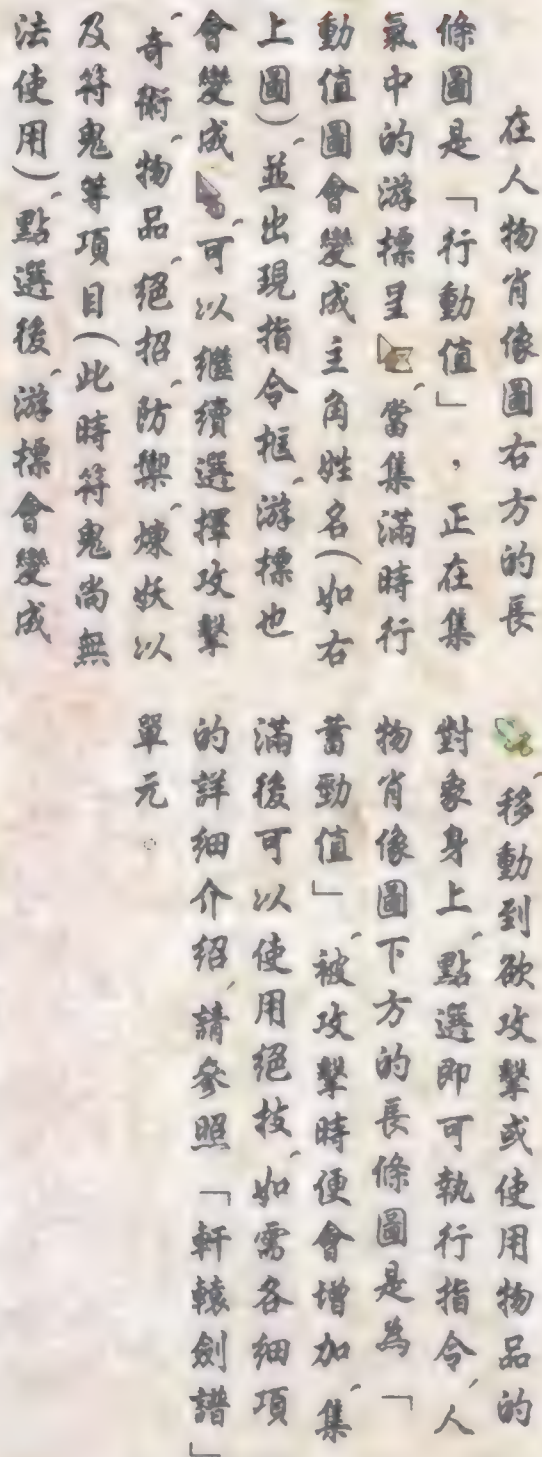 在人物肖像圖右方的長
條圖是「行動值」，正在集
氣中的游標呈，當集滿時行
動值圖會變成主角姓名(如右
上圖)，並出現指令框，游標也
會變成，可以繼續選擇攻擊
、奇術、物品、絕招、防禦、煉妖以
及符鬼等項目(此時符鬼尚無
法使用)，點選後，游標會變成
，移動到欲攻擊或使用物品的
對象身上，點選即可執行指令，人
物肖像圖下方的長條圖是為「
蓄勁值」，被攻擊時便會增加，集
滿後可以使用絕技，如需各細項
的詳細介紹，請參照「軒轅劍譜」
單元。